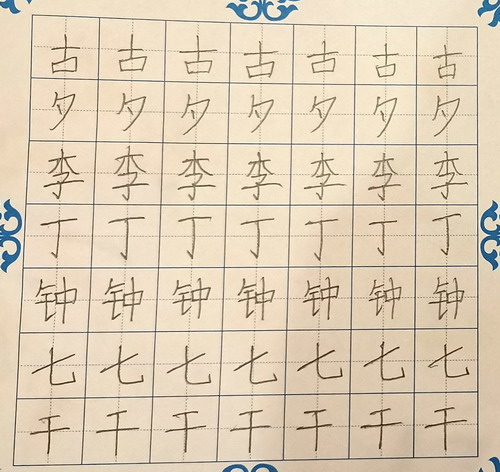 古古古古古古古
夕夕夕夕夕夕夕
李李李李李李李
丁丁丁丁丁丁丁
钟钟钟钟钟钟钟
七七七七七七七
干干干干干干干